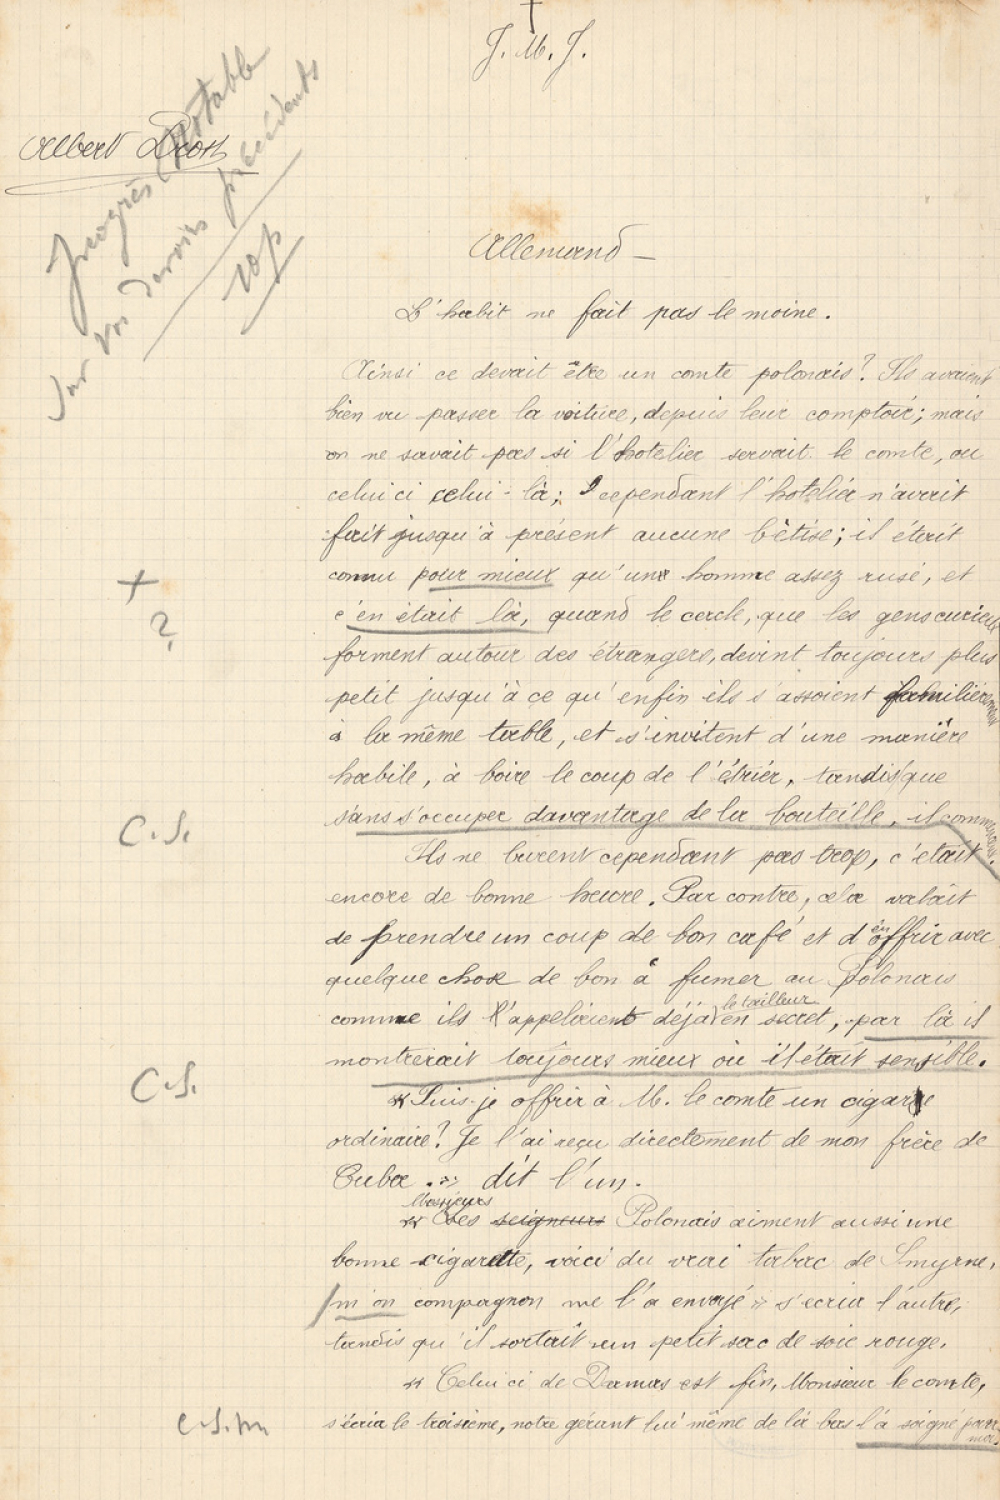 J. M. J.
Albert Dion
Progrès notable
sur vos devoirs précédents
10p
Allemand —
L'habit ne fait pas le moine.
Ainsi ce devait être un comte polonais? Ils avaient
bien vu passer la voiture, depuis leur comptoir; mais
on ne savait pas si l'hotelier servait le comte, ou
celui ci celui-là; cependant l'hotelier n'avait
fait jusqu'à présent aucune bêtise; il était
connu pour mieux qu'un homme assez rusé, et
+
c'en était là, quand le cercle, que les gens curieux
?
forment autour des étrangers, devint toujours plus
petit jusqu'à ce qu'enfin ils s'assoient familièrement
à la même table, et s'invitent d'une manière
habile, à boire le coup de l'étrier, tandis que
sans s'occuper davantage de la bouteille, il
C.S.
Ils ne burent cependant pas trop, c'était
encore de bonne heure. Par contre, cela valait
de prendre un coup de bon café et d'en offrir avec
quelque chose de bon à fumer au Polonais
comme ils l'appelaient déjà le tailleur en secret, par là il
montrerait toujours mieux où il était sensible.
C.S.
« Puis-je offrir à M. le comte un cigare
ordinaire? Je l'ai reçu directement de mon frère de
Cuba. » dit l'un.
« Messieurs les seigneurs Polonais aiment aussi une
bonne cigarette, voici du vrai tabac de Smyrne,
m'on compagnon me l'a envoyé » s'ecria l'autre,
tandis qu'il sortait un petit sac de soie rouge.
« Celui ci de Damas est fin, Monsieur le comte,
s'écria le troisième, notre gérant lui même de là bas l'a soigné pour
moi.
C.S.m